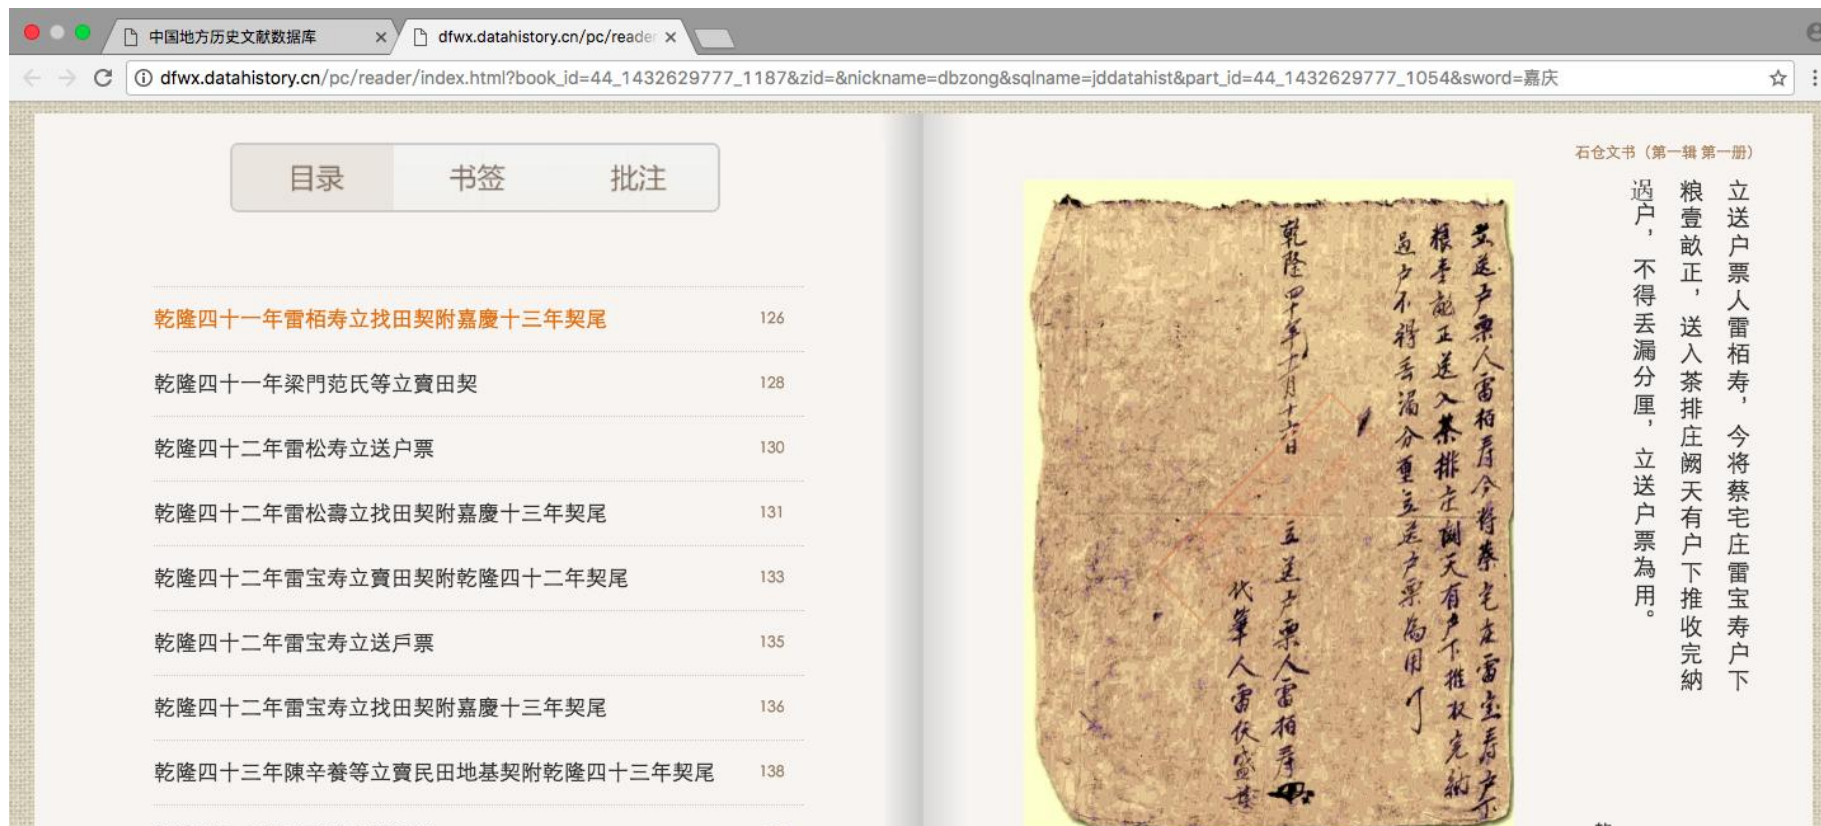 中国地方历史文献数据库
dfwx.datahistory.cn/pc/reade
dfwx.datahistory.cn/pc/reader/index.html?book_id=44_1432629777_1187&zid=&nickname=dbzong&sqlname=jddatahist&part_id=44_1432629777_1054&sword=嘉庆
目录 书签 批注
乾隆四十一年雷栢寿立找田契附嘉慶十三年契尾 126
乾隆四十一年梁門范氏等立賣田契 128
乾隆四十二年雷松寿立送户票 130
乾隆四十二年雷松壽立找田契附嘉慶十三年契尾 131
乾隆四十二年雷宝寿立賣田契附乾隆四十二年契尾 133
乾隆四十二年雷宝寿立送戶票 135
乾隆四十二年雷宝寿立找田契附嘉慶十三年契尾 136
乾隆四十三年陳辛養等立賣民田地基契附乾隆四十三年契尾 138
石仓文书（第一辑 第一册）
立送户票人雷栢寿，今将蔡宅庄雷宝寿户下
粮壹畝正，送入茶排庄阙天有户下推收完納
過户，不得丢漏分厘，立送户票為用。
立送户票人雷栢寿今将蔡宅庄雷宝寿户下
粮壹畝正送入茶排庄阙天有户下推收完納
過户不得丢漏分厘立送户票為用
乾隆四十年十一月十六日 立送户票人雷栢寿
代筆人雷伏盛